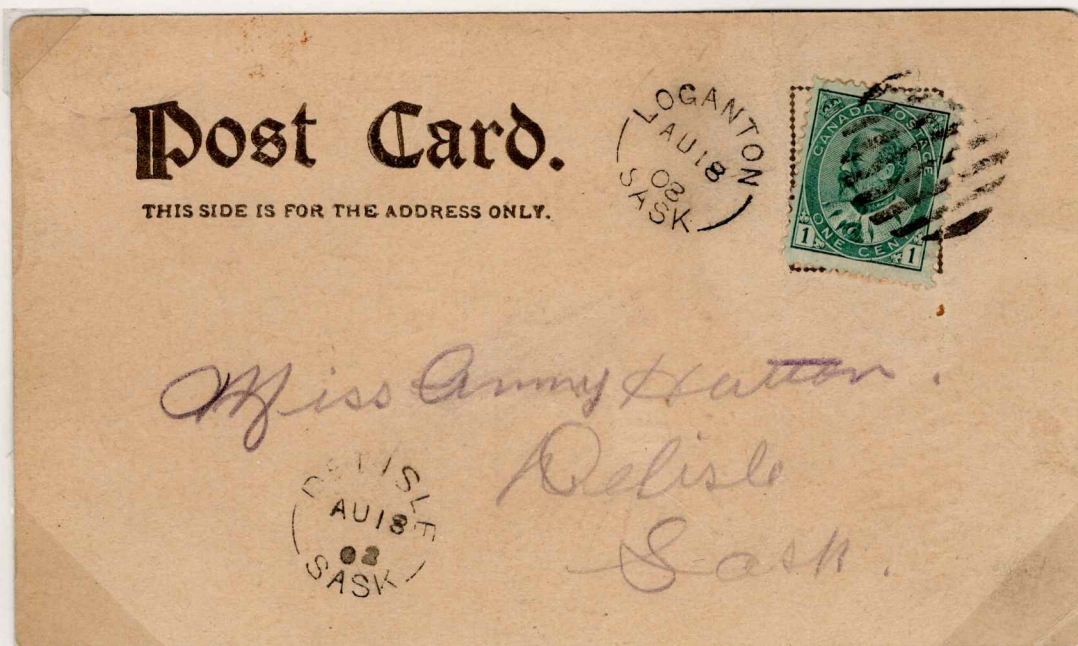 Post Card.
THIS SIDE IS FOR THE ADDRESS ONLY.
LOGANTON
AU 18
08
SASK
CANADA POSTAGE
ONE CENT
1 1
Miss Anny Hatton.
Delisle
Sask.
DELISLE
AU 18
08
SASK